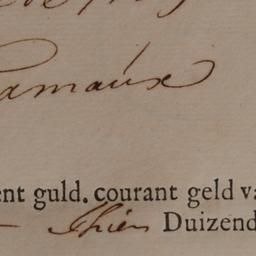 Ramaux
ent guld. courant geld va
Thien Duizend